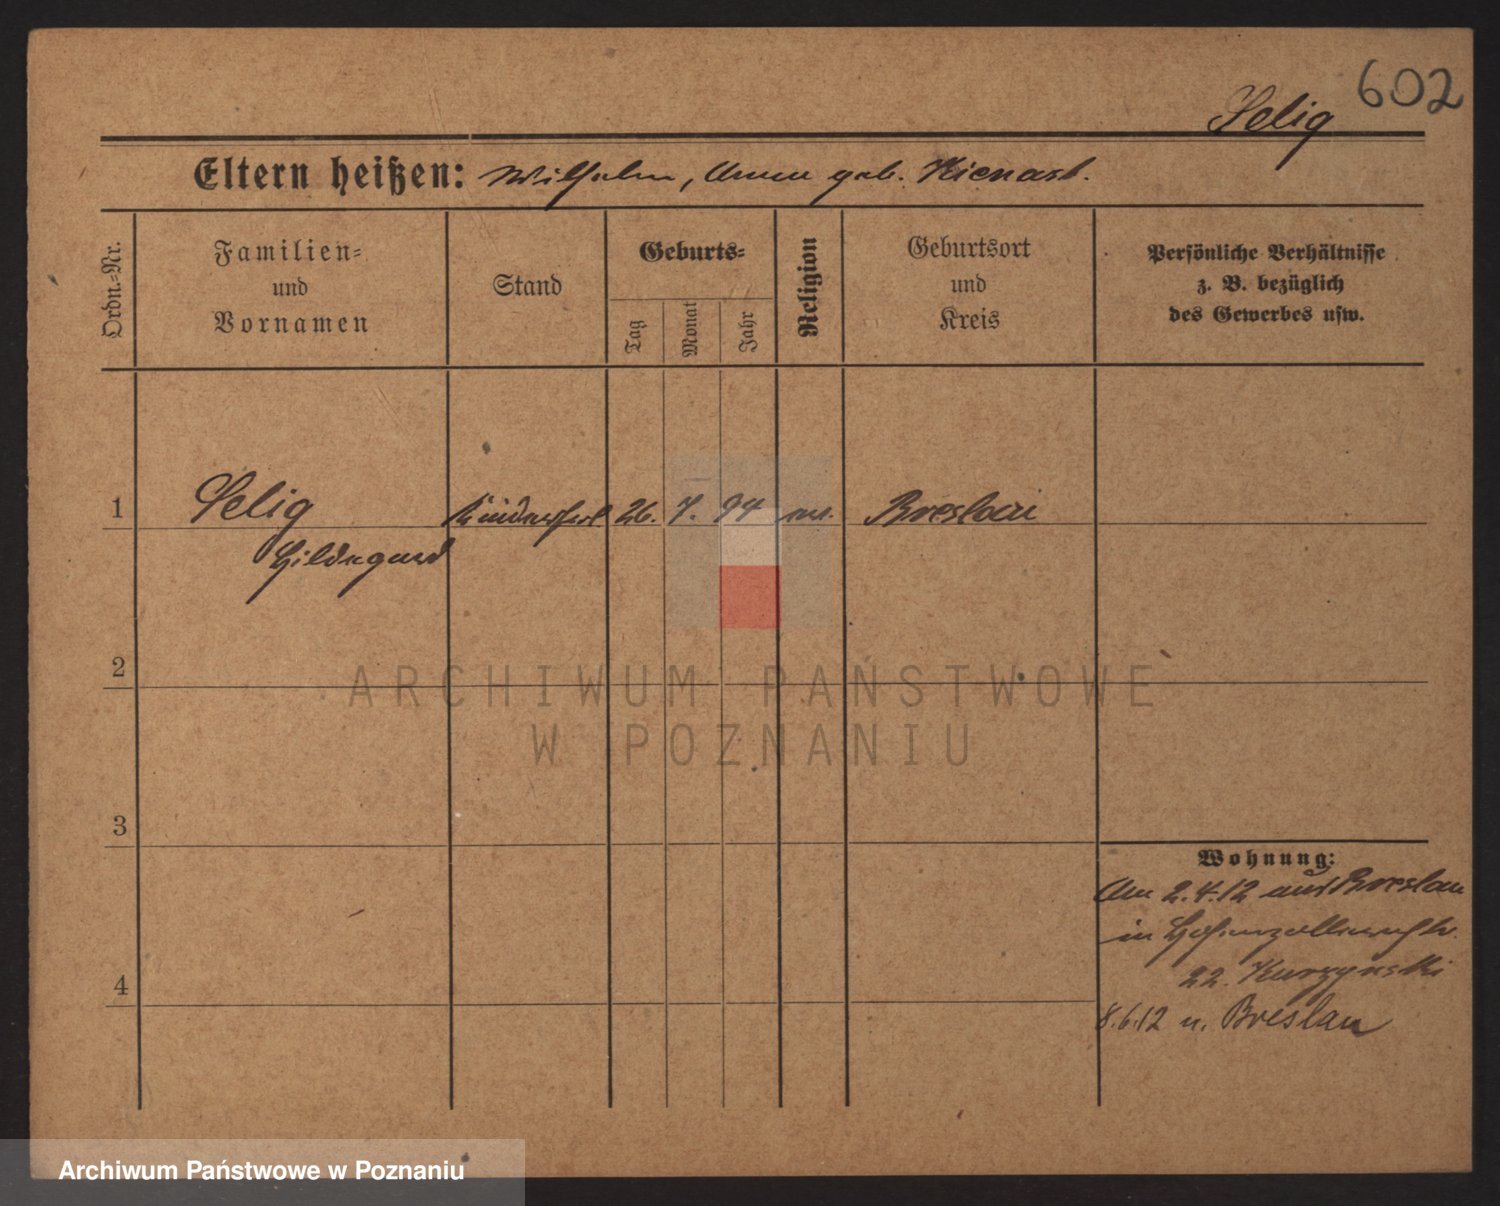 602
Selig
Eltern heißen: Wilhelm, Anna geb. Kienast.
Ordn.-Nr.
Familien-
und
Vornamen
Stand
Geburts-
Tag
Monat
Jahr
Religion
Geburtsort
und
Kreis
Persönliche Verhältnisse
z. B. bezüglich
des Gewerbes usw.
1
Selig
Hildegard
26. 7. 94 ev. Breslau
2
ARCHIWUM PAŃSTWOWE
W POZNANIU
3
4
Wohnung:
Am 2.4.12 aus Breslau
in Hohenzollernstr.
22. Kurzynski
8.6.12 n. Breslau
Archiwum Państwowe w Poznaniu